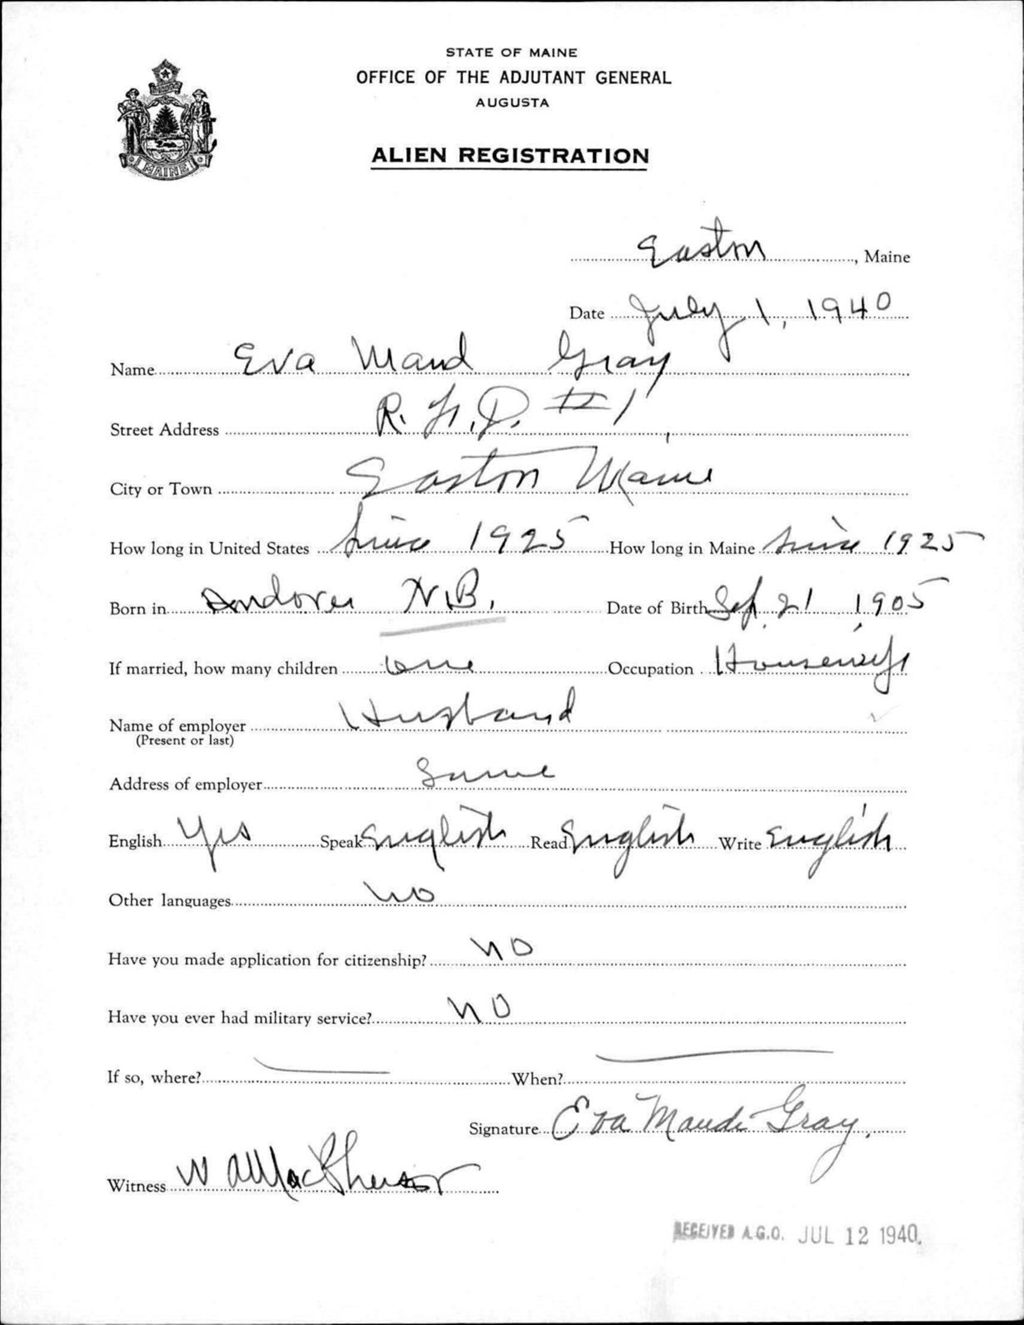 STATE OF MAINE
OFFICE OF THE ADJUTANT GENERAL
AUGUSTA
ALIEN REGISTRATION
MAINE
Easton, Maine
Date July 1, 1940
Name Eva Maud Gray
Street Address R.F.D. #1
City or Town Easton Maine
How long in United States Since 1925 How long in Maine Since 1925
Born in Andover N.B. Date of Birth Sep. 21 1905
If married, how many children one Occupation Housewife
Name of employer Husband
(Present or last)
Address of employer Same
English Yes Speak English Read English Write English
Other languages No
Have you made application for citizenship? NO
Have you ever had military service? NO
If so, where? When?
Signature Eva Maude Gray.
Witness W A MacPherson
RECEIVED A.G.O. JUL 12 1940.